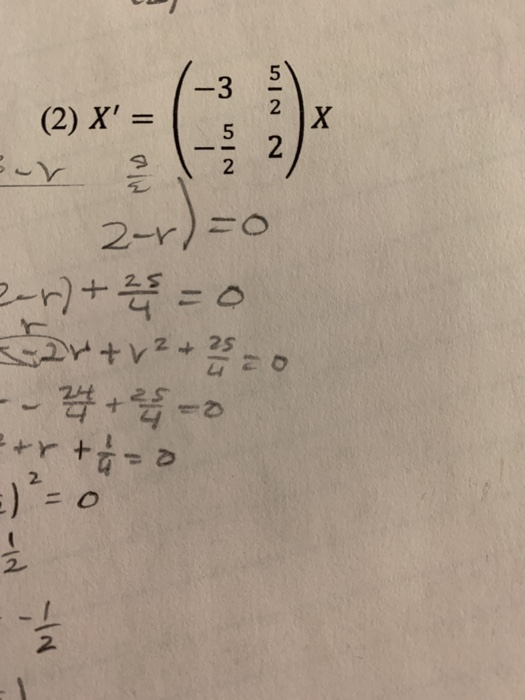 (2) X' = ( -3 5/2 ; -5/2 2 ) X
-r 5/2
2-r) = 0
2-r) + 25/4 = 0
r
-2r + r² + 25/4 = 0
- 24/4 + 25/4 = 0
² + r + 1/4 = 0
)² = 0
1/2
-1/2